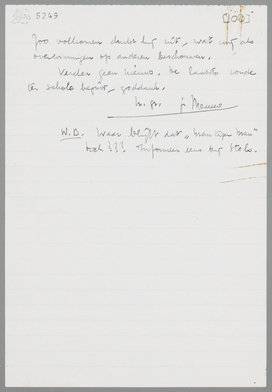 5249
[100]
Zoo volkomen drukt hij uit, wat wij als
overwinningen op anderen beschouwen.
Verder geen nieuws. De laatste ronde
ten schole begint, goddank.
h. gr. je Menno
W.D. Waar blijft dat „man tegen man”
toch??? Informeer eens bij Stols.